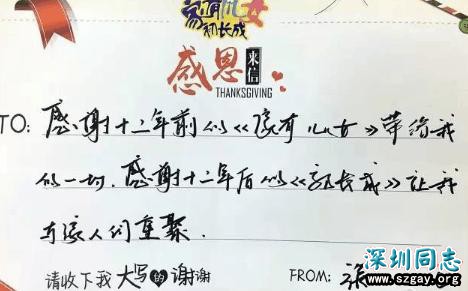 家有儿女
初长成
感恩 来信
THANKSGIVING
TO: 感谢十二年前的《家有儿女》带给我
的一切.感谢十二年后的《初长成》让我
与家人们重聚.
请收下我大写的谢谢
FROM: 张
深圳同志
www.szgay.org